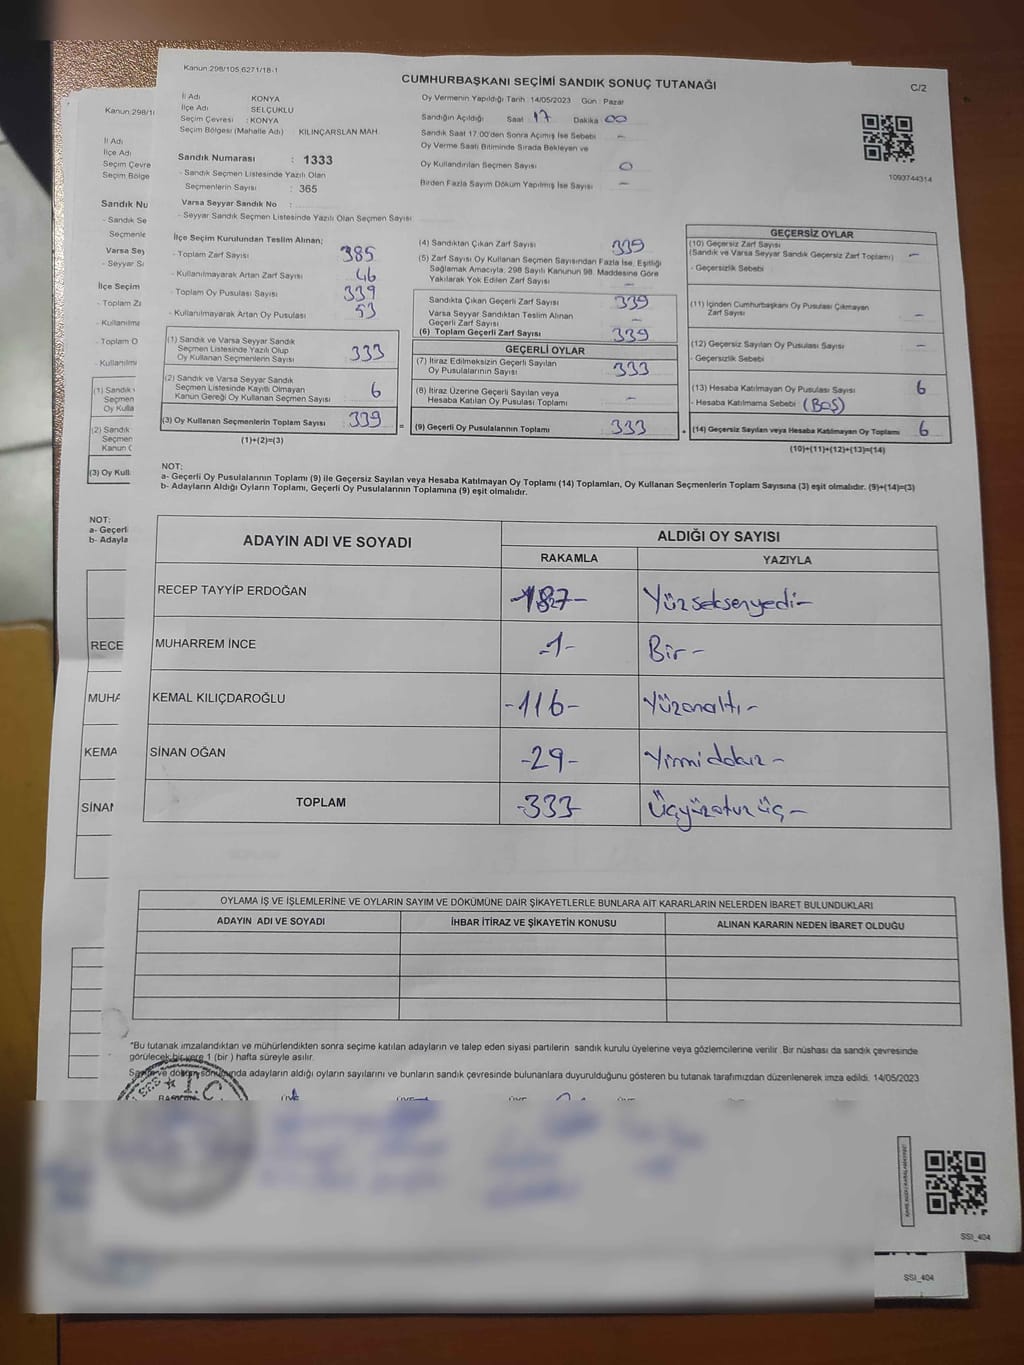 Kanun:298/105,6271/18-1
CUMHURBAŞKANI SEÇİMİ SANDIK SONUÇ TUTANAĞI
C/2
İl Adı KONYA
İlçe Adı SELÇUKLU
Seçim Çevresi : KONYA
Seçim Bölgesi (Mahalle Adı) KILINÇARSLAN MAH
Sandık Numarası : 1333
- Sandık Seçmen Listesinde Yazılı Olan
Seçmenlerin Sayısı : 365
Varsa Seyyar Sandık No :
- Seyyar Sandık Seçmen Listesinde Yazılı Olan Seçmen Sayısı
Oy Vermenin Yapıldığı Tarih : 14/05/2023 Gün : Pazar
Sandığın Açıldığı Saat 17 Dakika 00
Sandık Saat 17.00'den Sonra Açımış İse Sebebi -
Oy Verme Saati Bitiminde Sırada Bekleyen ve
Oy Kullandırılan Seçmen Sayısı 0
Birden Fazla Sayım Döküm Yapılmış İse Sayısı -
1093744314
İlçe Seçim Kurulundan Teslim Alınan;
- Toplam Zarf Sayısı 385
- Kullanılmayarak Artan Zarf Sayısı 46
- Toplam Oy Pusulası Sayısı 339
- Kullanılmayarak Artan Oy Pusulası 53
(1) Sandık ve Varsa Seyyar Sandık
Seçmen Listesinde Yazılı Olup
Oy Kullanan Seçmenlerin Sayısı 333
(2) Sandık ve Varsa Seyyar Sandık
Seçmen Listesinde Kayıtlı Olmayan
Kanun Gereği Oy Kullanan Seçmen Sayısı 6
(3) Oy Kullanan Seçmenlerin Toplam Sayısı 339
(1)+(2)=(3)
(4) Sandıktan Çıkan Zarf Sayısı 339
(5) Zarf Sayısı Oy Kullanan Seçmen Sayısından Fazla İse, Eşitliği
Sağlamak Amacıyla, 298 Sayılı Kanunun 98. Maddesine Göre
Yakılarak Yok Edilen Zarf Sayısı -
Sandıkta Çıkan Geçerli Zarf Sayısı 339
Varsa Seyyar Sandıktan Teslim Alınan
Geçerli Zarf Sayısı -
(6) Toplam Geçerli Zarf Sayısı 339
GEÇERLİ OYLAR
(7) İtiraz Edilmeksizin Geçerli Sayılan
Oy Pusulalarının Sayısı 333
(8) İtiraz Üzerine Geçerli Sayılan veya
Hesaba Katılan Oy Pusulası Toplamı -
= (9) Geçerli Oy Pusulalarının Toplamı 333
GEÇERSİZ OYLAR
(10) Geçersiz Zarf Sayısı
(Sandık ve Varsa Seyyar Sandık Geçersiz Zarf Toplamı) -
- Geçersizlik Sebebi
(11) İçinden Cumhurbaşkanı Oy Pusulası Çıkmayan
Zarf Sayısı -
(12) Geçersiz Sayılan Oy Pusulası Sayısı -
- Geçersizlik Sebebi
(13) Hesaba Katılmayan Oy Pusulası Sayısı 6
- Hesaba Katılmama Sebebi (BOŞ)
+ (14) Geçersiz Sayılan veya Hesaba Katılmayan Oy Toplamı 6
(10)+(11)+(12)+(13)=(14)
NOT:
a- Geçerli Oy Pusulalarının Toplamı (9) ile Geçersiz Sayılan veya Hesaba Katılmayan Oy Toplamı (14) Toplamları, Oy Kullanan Seçmenlerin Toplam Sayısına (3) eşit olmalıdır. (9)+(14)=(3)
b- Adayların Aldığı Oyların Toplamı, Geçerli Oy Pusulalarının Toplamına (9) eşit olmalıdır.
ADAYIN ADI VE SOYADI ALDIĞI OY SAYISI
RAKAMLA YAZIYLA
RECEP TAYYİP ERDOĞAN -187- Yüzseksenyedi-
MUHARREM İNCE -1- Bir-
KEMAL KILIÇDAROĞLU -116- Yüzonaltı-
SİNAN OĞAN -29- Yirmidokuz-
TOPLAM -333- Üçyüzotuzüç-
OYLAMA İŞ VE İŞLEMLERİNE VE OYLARIN SAYIM VE DÖKÜMÜNE DAİR ŞİKAYETLERLE BUNLARA AİT KARARLARIN NELERDEN İBARET BULUNDUKLARI
ADAYIN ADI VE SOYADI İHBAR İTİRAZ VE ŞİKAYETİN KONUSU ALINAN KARARIN NEDEN İBARET OLDUĞU
*Bu tutanak imzalandıktan ve mühürlendikten sonra seçime katılan adayların ve talep eden siyasi partilerin sandık kurulu üyelerine veya gözlemcilerine verilir. Bir nüshası da sandık çevresinde
görülecek bir yere 1 (bir ) hafta süreyle asılır.
Sayım ve döküm sonuğunda adayların aldığı oyların sayılarını ve bunların sandık çevresinde bulunanlara duyurulduğunu gösteren bu tutanak tarafımızdan düzenlenerek imza edildi. 14/05/2023
T.C.
SSİ_404
SSİ_404
Kanun:298/1
İl Adı
İlçe Adı
Seçim Çevre
Seçim Bölge
Sandık Nu
- Sandık Se
Seçmenle
Varsa Sey
- Seyyar Sa
İlçe Seçim
- Toplam Za
- Kullanılma
- Toplam O
- Kullanılmı
(1) Sandık v
Seçmen
Oy Kulla
(2) Sandık
Seçmen
Kanun G
(3) Oy Kull
NOT:
a- Geçerli
b- Adayla
RECE
MUHA
KEMA
SİNAN